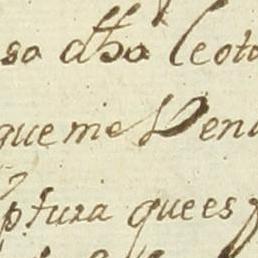 so dha Leoto
que me Vend
ptura que es